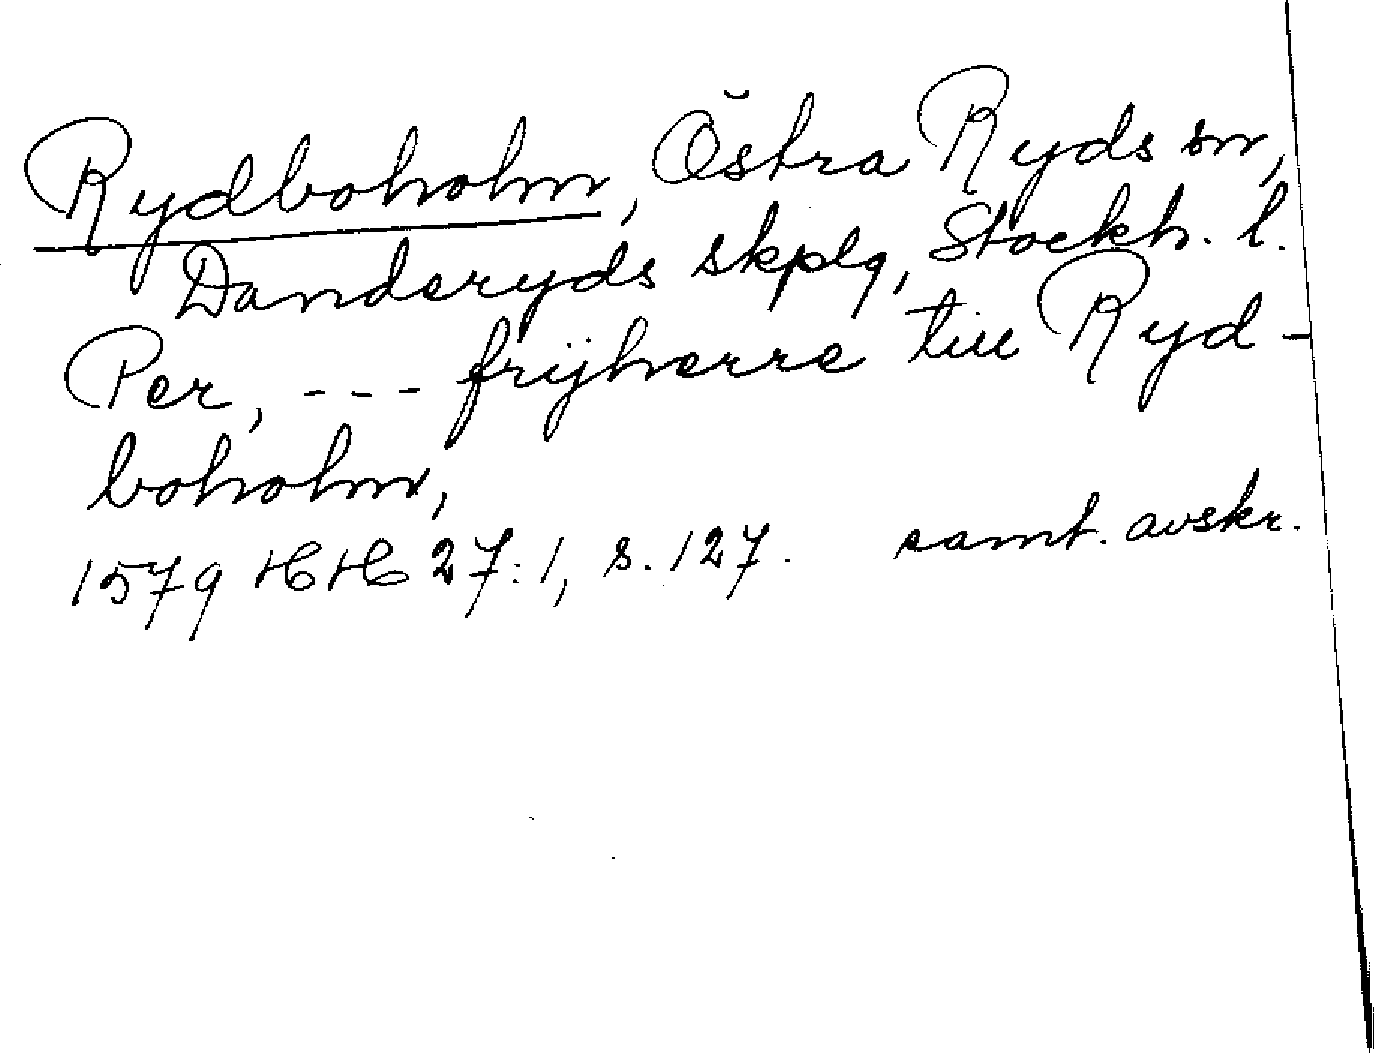 Rydboholm, Östra Ryds sn,
Danderyds skplg, Stockh. l.
Per, --- frijherre till Ryd-
boholm,
1579 HH 27:1, s. 127. samt. avskr.